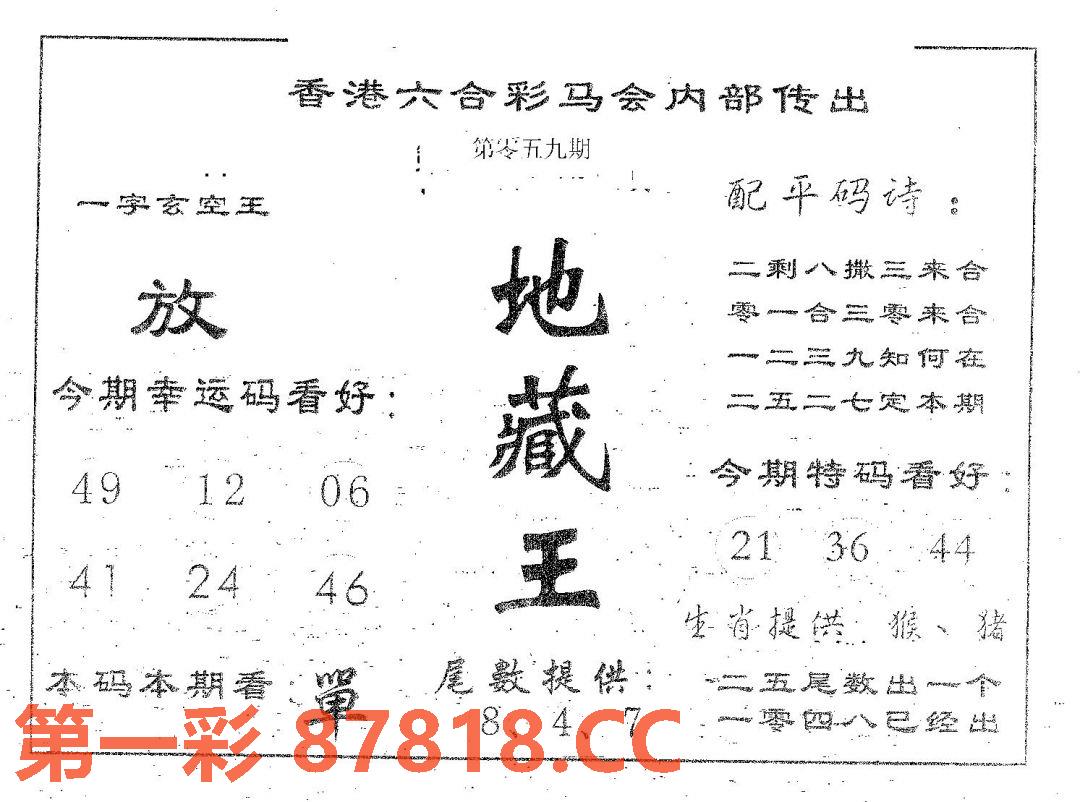 香港六合彩马会内部传出
第零五九期
一字玄空王
放
今期幸运码看好：
49 12 06
41 24 46
本码本期看：單
地藏王
尾數提供：
8、4、7
配平码诗：
二剩八撒三来合
零一合三零来合
一二三九知何在
二五二七定本期
今期特码看好：
21 36 44
生肖提供：猴、猪
二五尾数出一个
一零四八已经出
第一彩 87818.CC